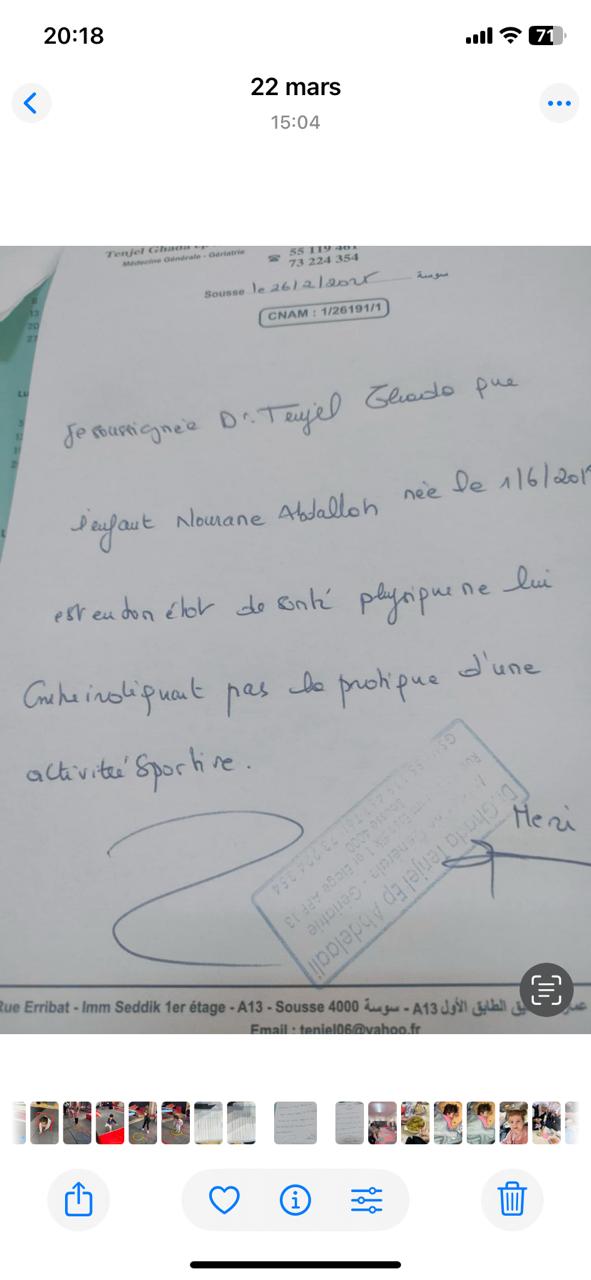 20:18
71
22 mars
15:04
Tenjel Ghada
Médecine Générale - Gériatrie
55 119 461
73 224 354
Sousse le 26/2/2025 سوسة
CNAM : 1/26191/1
Je soussignée Dr. Tenjel Ghada que
l'enfant Nourane Abdallah née le 1/6/201
est en bon état de santé physique ne lui
contreindiquant pas la pratique d'une
activiteé Sportive.
Merci
Dr Ghada Tenjel Ep Abdeladil
Générale - Gériatrie
1er Etage APP 13
Sousse 4000
Rue Erribat - Imm Seddik 1er étage - A13 - Sousse 4000 سوسة - A13 الطابق الأول
Email : tenjel06@yahoo.fr